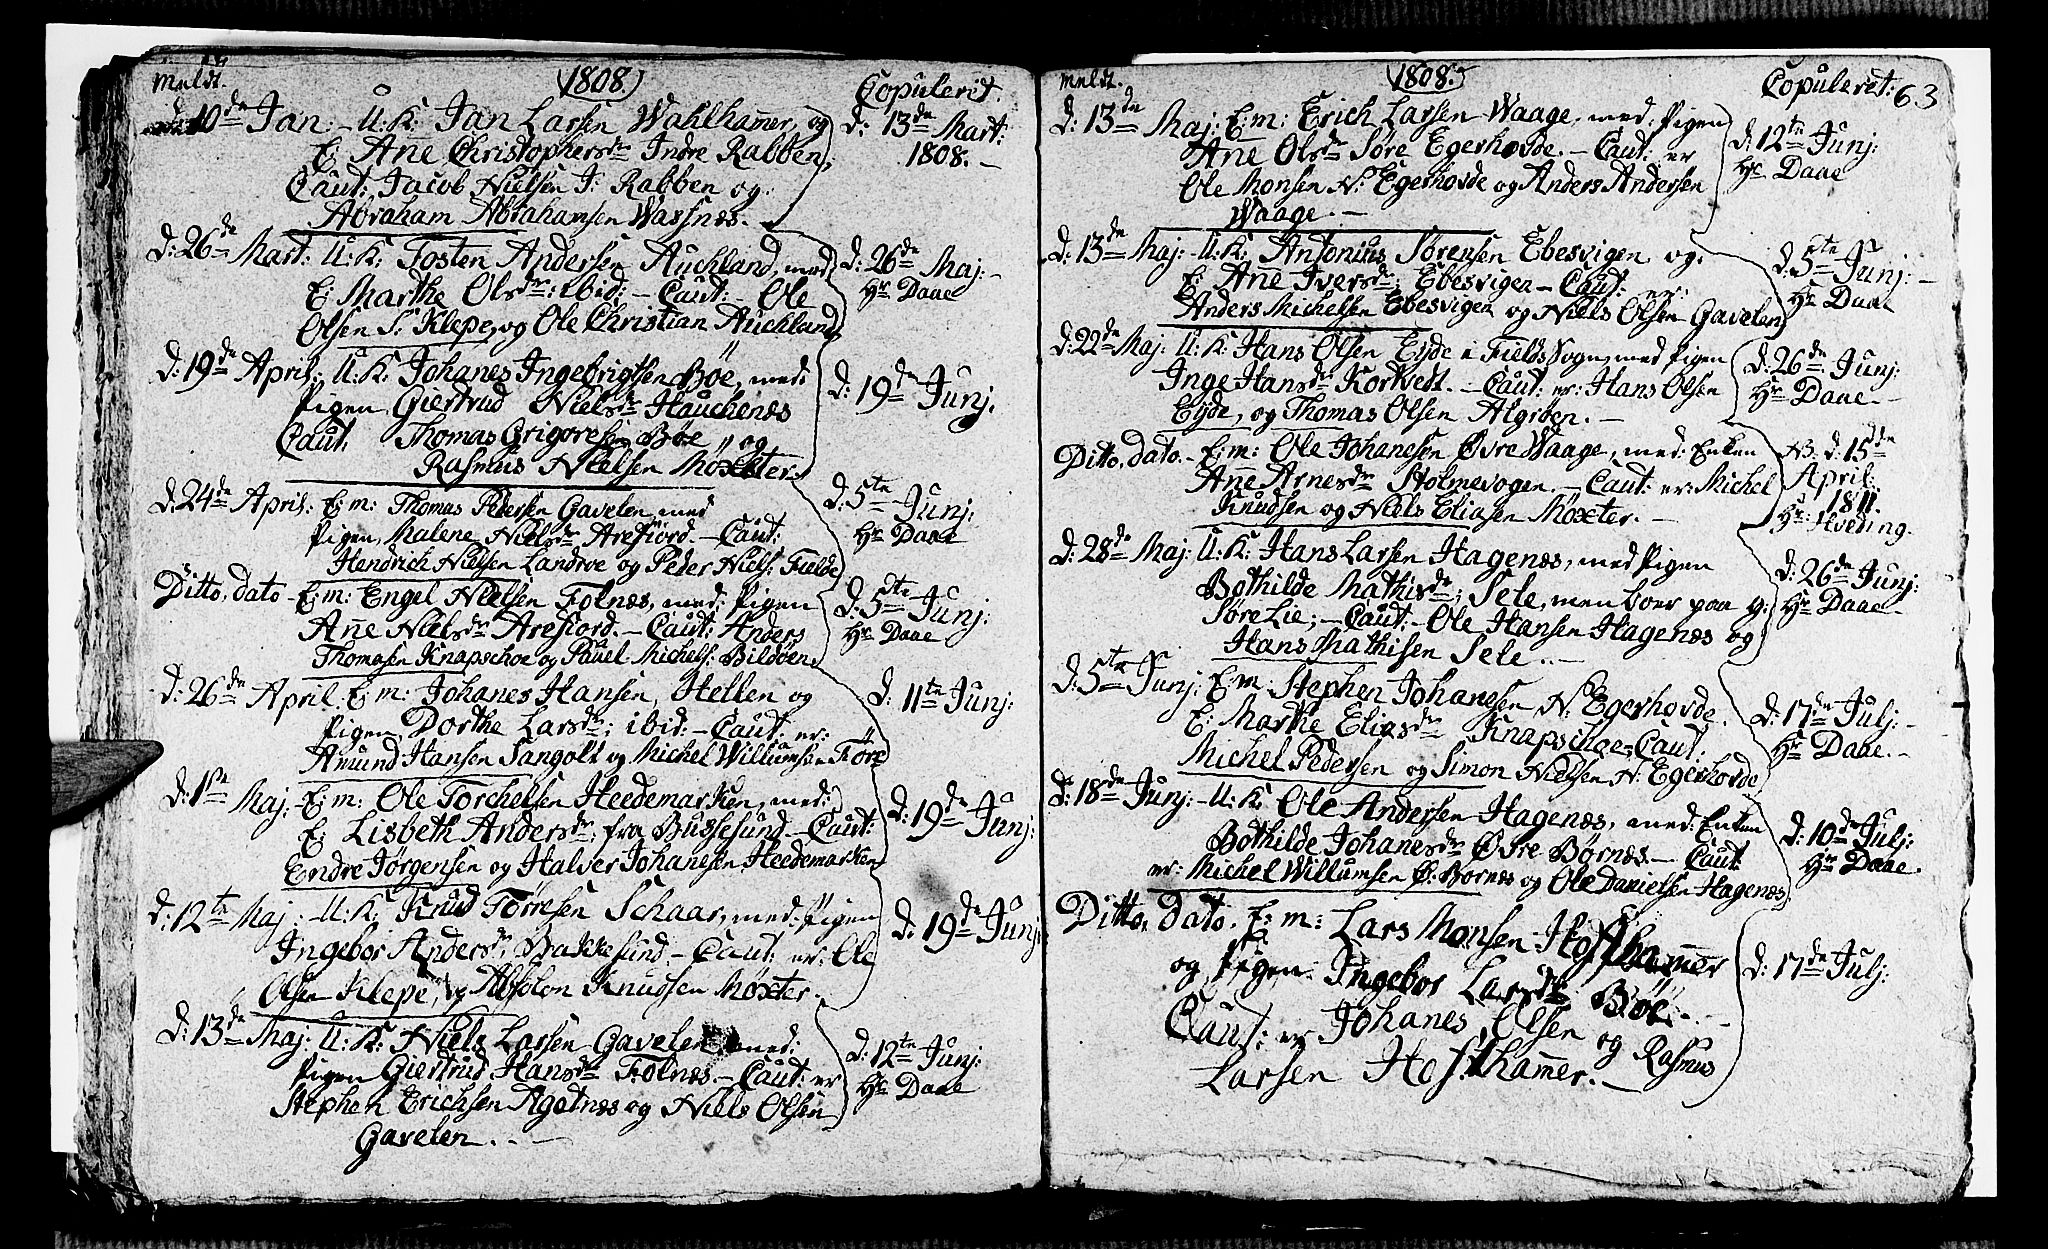 Meldt. 1808. Copuleret.
d: 10de Jan: - U: K: Jan Larsen Wahlham̅er, og d: 13de Mart:
E: Ane Christophersdr Indre Rabben, 1808. -
Caut: Jacob Nielsen J: Rabben og
Abraham Abrahamsen Wassnæs.
d: 26de Mart: U: K: Tosten Andersen Auchland, med d: 26de Maj: -
E: Marthe Olsdr: ibid: - Caut: Ole Hr Daae
Olsen S: Klepe, og Ole Christian Auchland
d: 19de April: U: K: Johanes Ingebrigtsen Böe, med: d: 19de Junj.
Pigen Giertrud Nielsdr Hauchenæs
Caut Thomas Grigoresen Böe, og
Rasmus Nielsen Möxter.
d: 24de April: E: m: Thomas Pedersen Gavelen, med d: 5te Junj:
Pigen, Malene Nielsdr Arefiord. - Caut: Hr Daae
Hendrich Nielsen Landroe og Peder Niels: Fielde
Ditto, dato - E: m: Engel Nielsen Folnæs, med: Pigen d: 5te Junj:
An̅e Nielsdr Arefiord. - Caut: Anders Hr Daae
Thomasen Knapschoe og Pauel Michels: Bildöen
d: 26de April. E: m: Johanes Hansen, Hellen og d: 11te Junj:
Pigen, Dorthe Larsdr; ibid: - Caut: er:
Amund Hansen Sangolt og Michel Willumsen Töre
d: 1ste Maj: - E: m: Ole Torchelsen Heedemarken, med: d: 19de Junj:
E: Lisbeth Andersdr; fra Bussesund - Caut:
Endre Jörgensen og Halver Johanesen Heedemarken
d: 12te Maj: U: K: Knud Törresen Schaar, med: Pigen d: 19de Junj:
Ingebor Andersdr Bakkesund. - Caut: er: Ole
Olsen Klepe, og Absolon Knudsen Möxter.
d: 13de Maj: U: K: Niels Larsen Gavelen med: d: 12te Junj:
Pigen Giertrud Hansdr Folnæs. - Caut: er Hr Daae
Stephen Erichsen Agotnæs og Niels Olsen
Gavelen. . -
Meldt. 1808. Copuleret: 63
d: 13de Maj: E: m: Erich Larsen Waage, med: Pigen d: 12te Junj:
Ane Olsdr Söre Egerhovde. - Caut: er Hr Daae
Ole Monsen N: Egerhovde og Anders Andersen
Waage. -
d: 13de Maj: U: K: Antonius Sörensen Ebesvigen og d: 5te Junj: -
E: An̅e Iversdr; Ebesvigen - Caut: er: Hr Daae
Anders Michelsen Ebesvigen og Niels Olsen Gavelen
d: 22de Maj: U: K: Hans Olsen Eyde i Fields Sogn, med Pigen d: 26de Junj:
Inge Hansdr Kortvedt. - Caut: er: Hans Olsen Hr Daae -
Eyde, og Thomas Olsen Algröen. -
Ditto, dato. - E: m: Ole Johanesen Övre Waage, med: Enken NB. d: 15de
An̅e Arnesdr Holmevogen. - Caut: er: Michel April:
Knudsen og Niels Eliasen Möxter. - 1811.
Hr: Hveding.
d: 28de Maj: U: K: Hans Larsen Hagenæs, med Pigen d: 26de Junj:
Bothilde Mathisdr; Sele, men boer paa G: Hr Daae -
Söre Lie; - Caut: - Ole Hansen Hagenæs og
Hans Mathisen Sele. . -
d: 5te Junj: E: m: Stephen Johanesen N: Egerhovde. d: 17de Julj: -
E: Marthe Eliasdr Knapschoe - Caut: Hr Daae. -
Michel Pedersen og Simon Nielsen N: Egerhovde
d: 18de Junj: - U: K: Ole Andersen Hagenæs, med: Enken d: 10de Julj:
Bothilde Johanesdr Övre Börnæs. - Caut Hr Daae.
er: Michel Willumsen Ö: Bornæs og Ole Danielsen Hagenæs
Ditto, Dato. E: m: Lars Monsen Hofsham̅er d: 17de Julj:
og Pigen Ingebor Larsdr Böe. -
Caut: er Johanes Olsen og Rasmus
Larsen Hofsham̅er. -